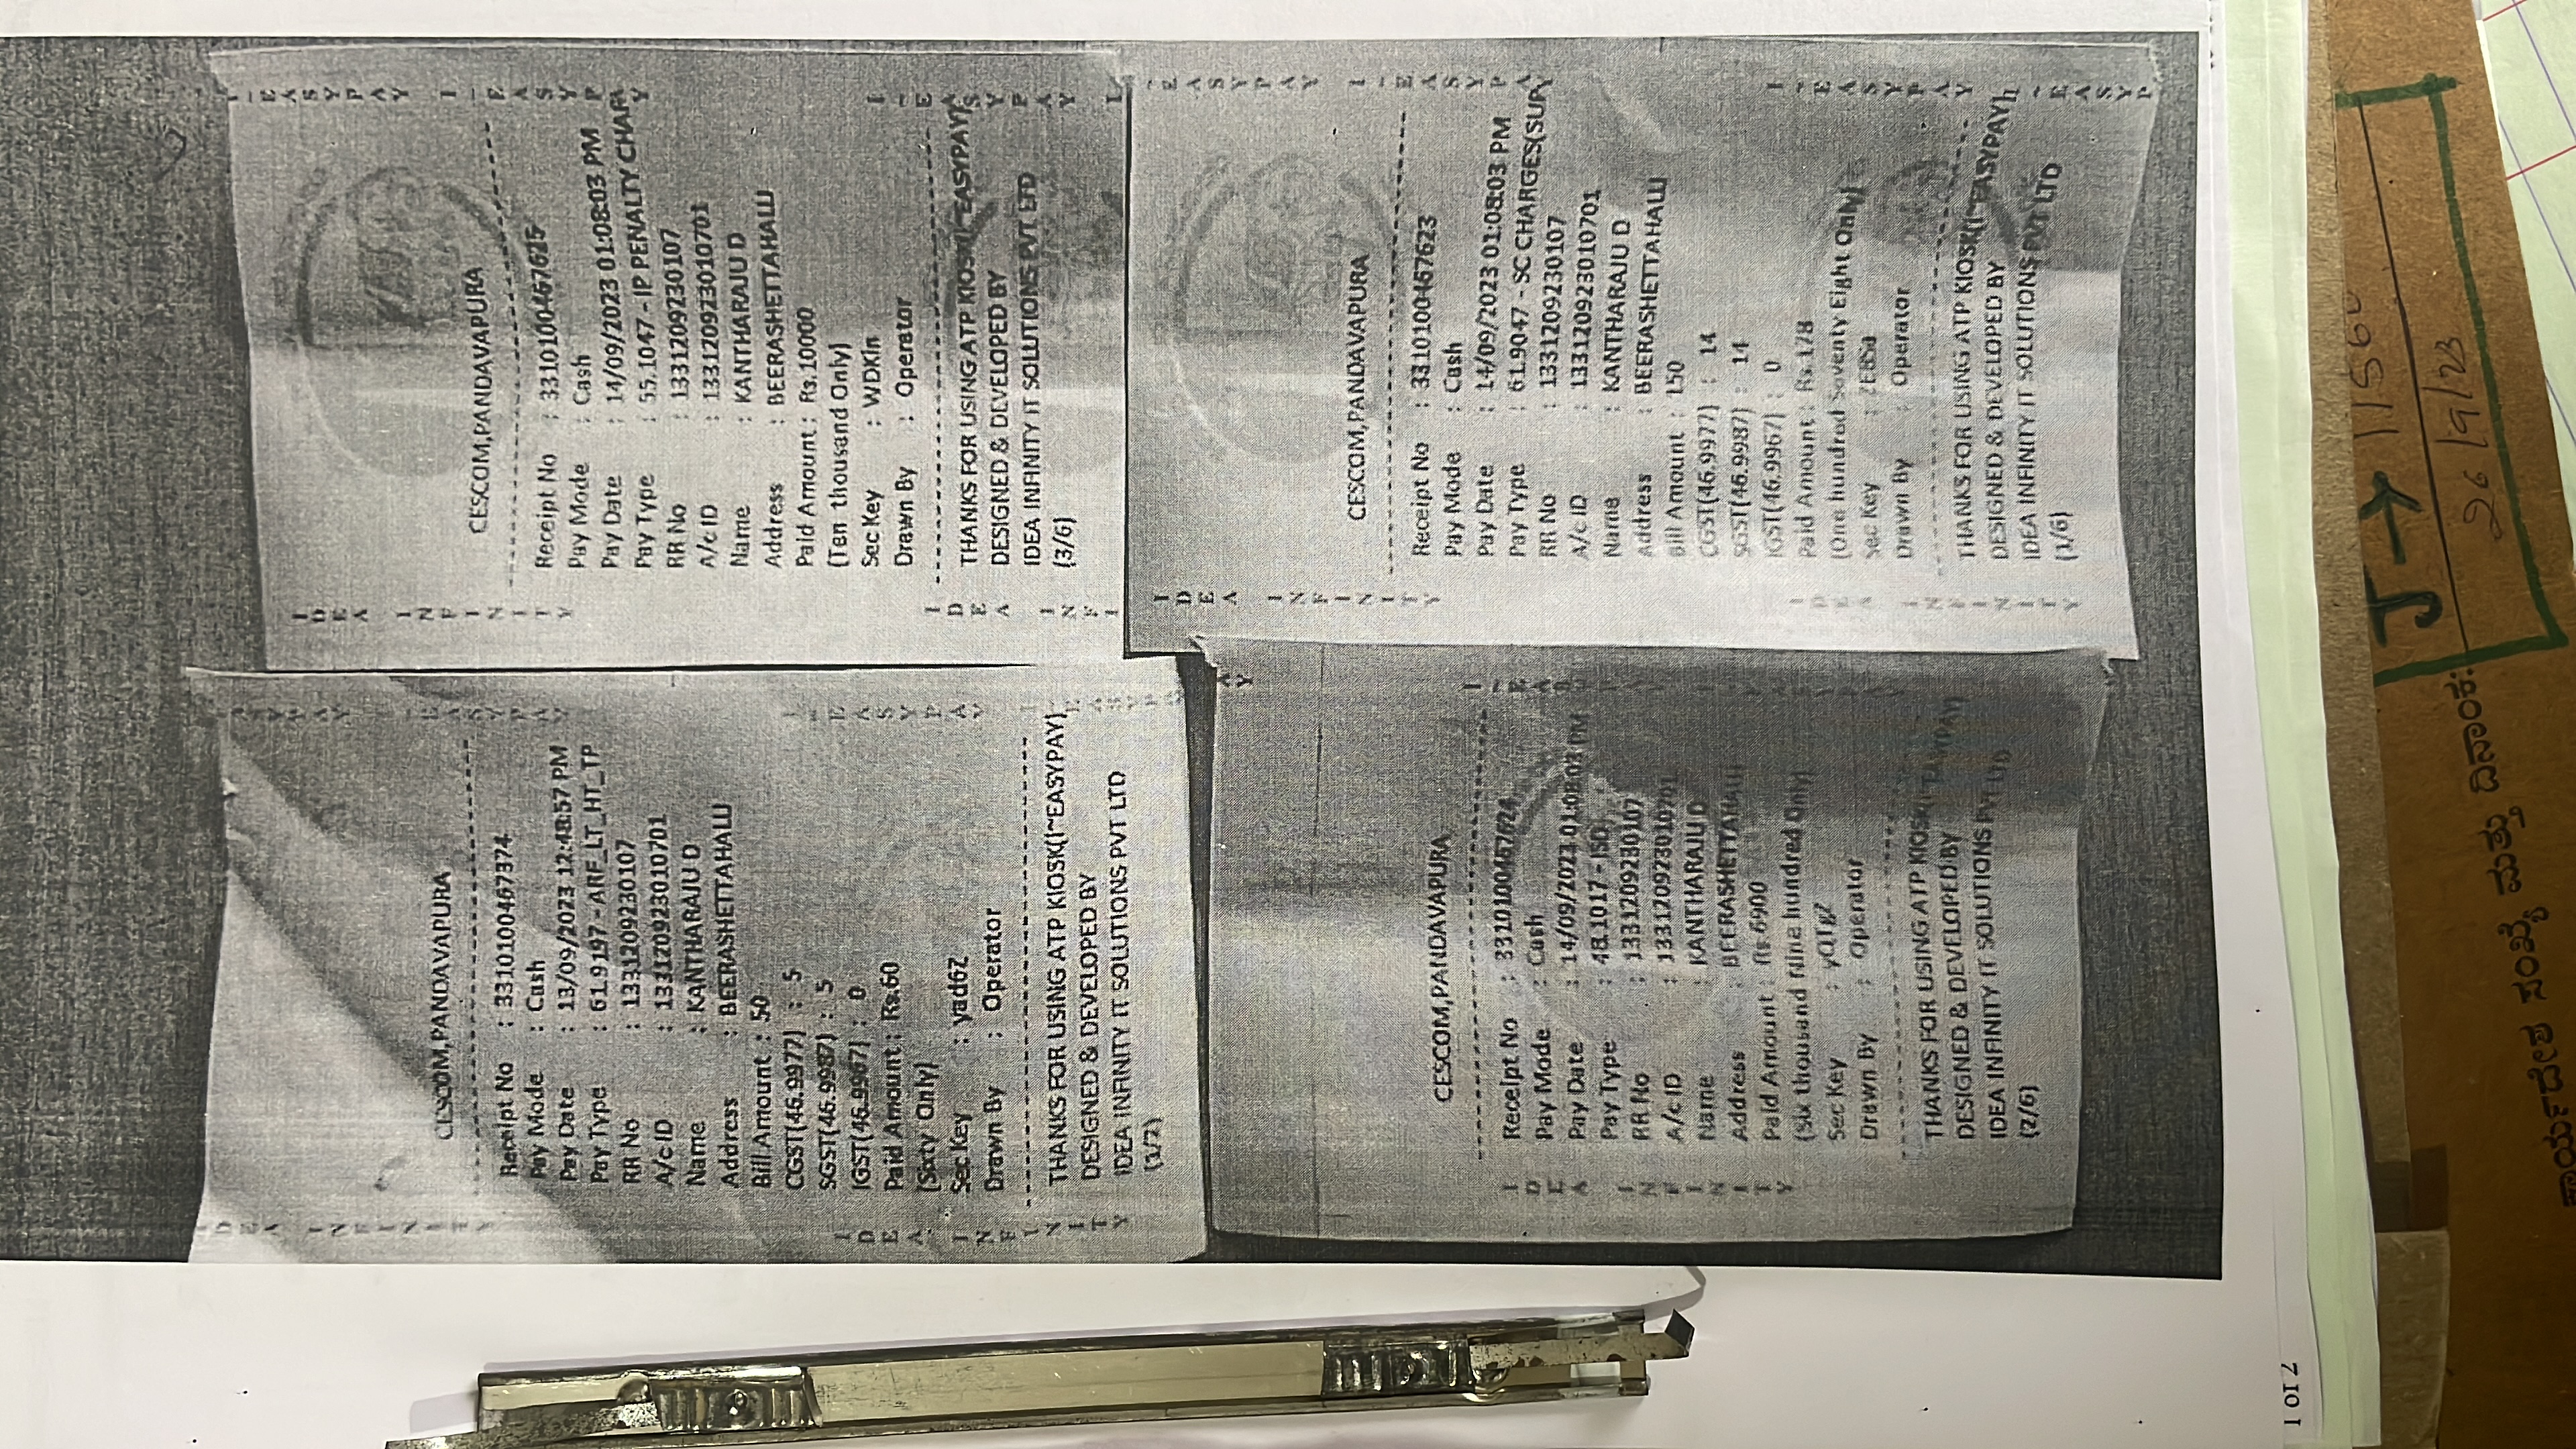 CESCOM,PANDAVAPURA
Receipt No : 3310100467374
Pay Mode : Cash
Pay Date : 13/09/2023 12:48:57 PM
Pay Type : 61.9197 - ARF_LT_HT_TP
RR No : 1331209230107
A/c ID : 133120923010701
Name : KANTHARAJU D
Address : BEERASHETTAHALLI
Bill Amount : 50
CGST(46.9977) : 5
SGST(46.9987) : 5
IGST(46.9967) : 0
Paid Amount : Rs.60
(Sixty Only)
Sec Key : yad6Z
Drawn By : Operator
THANKS FOR USING ATP KIOSK(I~EASYPAY)
DESIGNED & DEVELOPED BY
IDEA INFINITY IT SOLUTIONS PVT LTD
CESCOM,PANDAVAPURA
Receipt No : 3310100467625
Pay Mode : Cash
Pay Date : 14/09/2023 01:08:03 PM
Pay Type : 55.1047 - IP PENALTY CHAR
RR No : 1331209230107
A/c ID : 133120923010701
Name : KANTHARAJU D
Address : BEERASHETTAHALLI
Paid Amount : Rs.10000
(Ten thousand Only)
Sec Key : WDKin
Drawn By : Operator
THANKS FOR USING ATP KIOSK(I~EASYPAY)
DESIGNED & DEVELOPED BY
IDEA INFINITY IT SOLUTIONS PVT LTD
(3/6)
CESCOM,PANDAVAPURA
Receipt No : 3310100467624
Pay Mode : Cash
Pay Date : 14/09/2023 01:08:03 PM
Pay Type : 48.1017 - ISD
RR No : 1331209230107
A/c ID : 133120923010701
Name : KANTHARAJU D
Address : BEERASHETTAHALLI
Paid Amount : Rs.6900
(Six thousand Nine hundred Only)
Sec Key :
Drawn By : Operator
THANKS FOR USING ATP KIOSK(I~EASYPAY)
DESIGNED & DEVELOPED BY
IDEA INFINITY IT SOLUTIONS PVT LTD
(2/6)
CESCOM,PANDAVAPURA
Receipt No : 3310100467623
Pay Mode : Cash
Pay Date : 14/09/2023 01:08:03 PM
Pay Type : 61.9047 - SC CHARGES(SUP
RR No : 1331209230107
A/c ID : 133120923010701
Name : KANTHARAJU D
Address : BEERASHETTAHALLI
Bill Amount : 150
CGST(46.9977) : 14
SGST(46.9987) : 14
IGST(46.9967) : 0
Paid Amount : Rs.178
(One hundred Seventy Eight Only)
Sec Key :
Drawn By : Operator
THANKS FOR USING ATP KIOSK(I~EASYPAY)
DESIGNED & DEVELOPED BY
IDEA INFINITY IT SOLUTIONS PVT LTD
(1/6)
J →
26/9/23
ಸಂಖ್ಯೆ ಮತ್ತು ದಿನಾಂಕ: